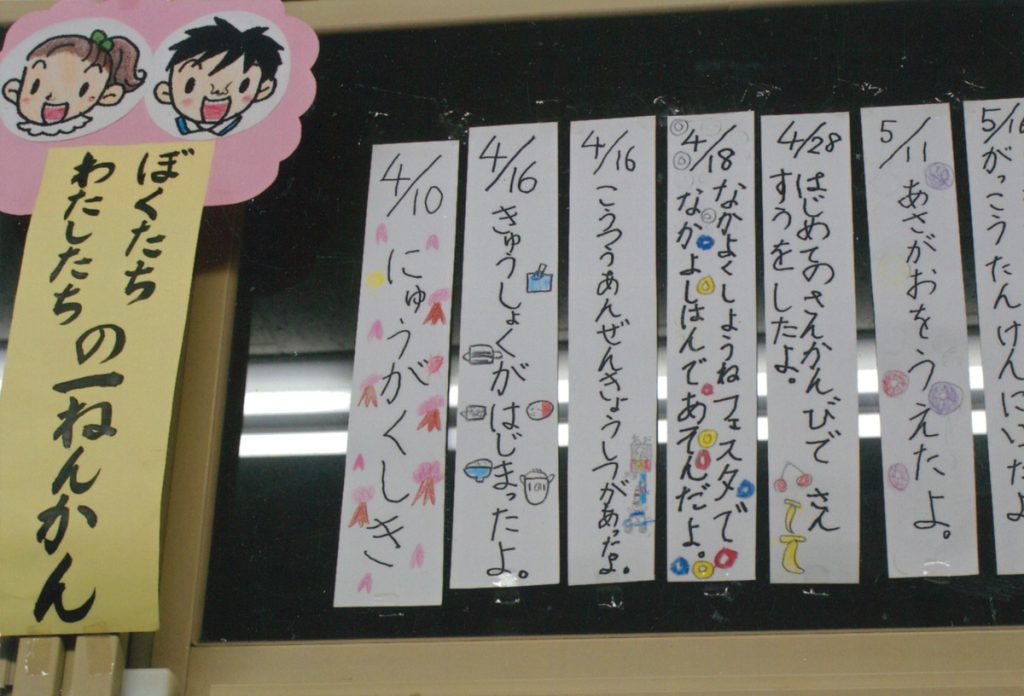 ぼくたち
わたしたち
の一ねんかん
4/10
にゅうがくしき
4/16
きゅうしょくがはじまったよ。
4/16
こうつうあんぜんきょうしつがあったよ。
4/18
なかよくしようねフェスタで
なかよしはんであそんだよ。
4/28
はじめてのさんかんびで さん
すうをしたよ。
5/11
あさがおをうえたよ。
5/16
がっこうたんけんにいった